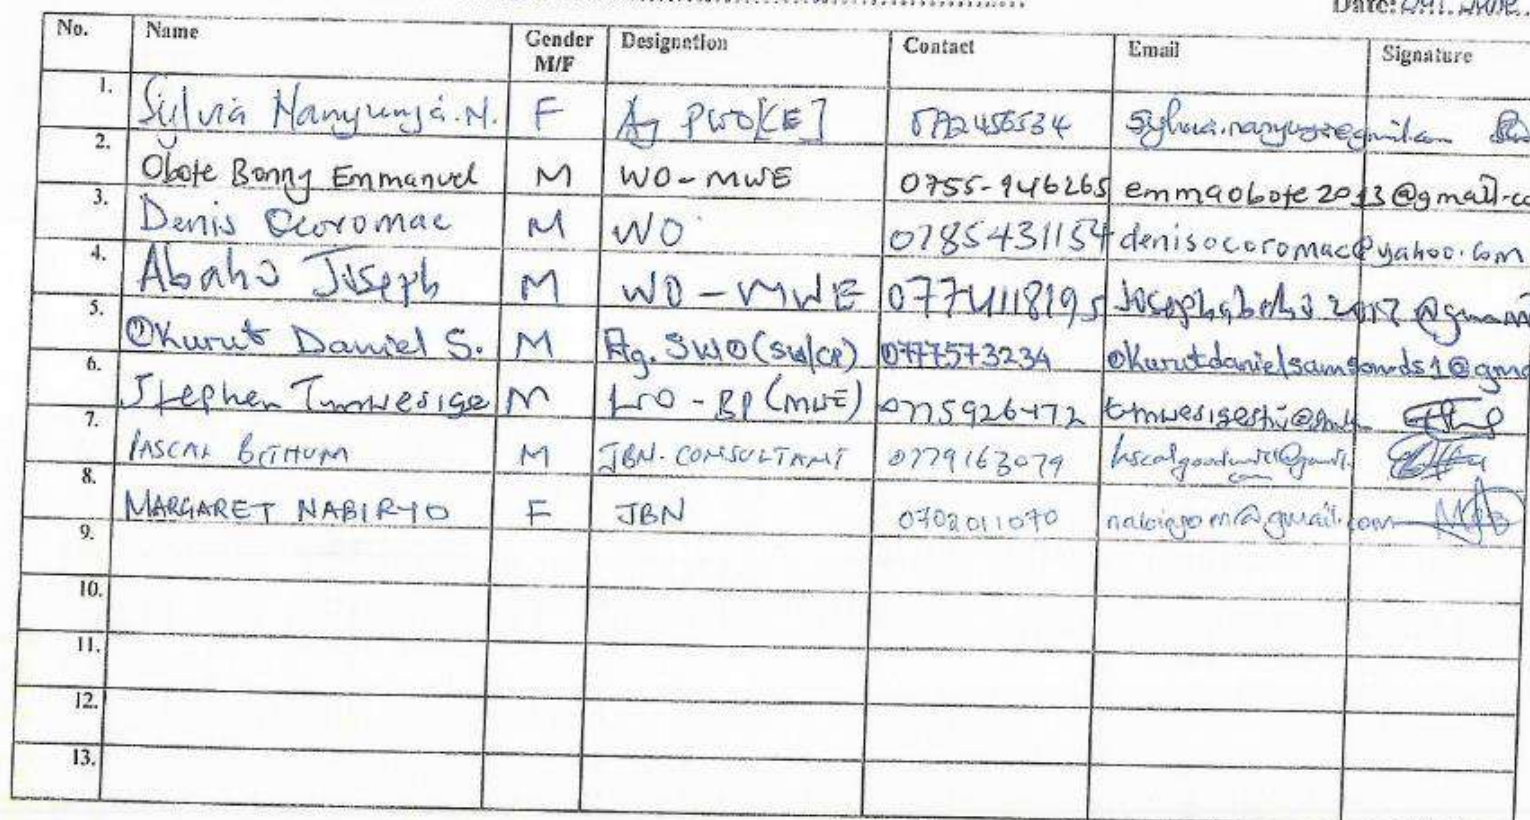 Date:
No. Name Gender M/F Designation Contact Email Signature
1. Sylvia Nanyunja.N. F Ag PWO[CE] 0772456534
2. Obote Bonny Emmanuel M WO-MWE 0755-946265 emmaobote2013@gmail-co
3. Denis Ocoromac M WO 0785431154 denisocoromac@yahoo.com
4. Abaho Joseph M WO-MWE 0774118195
5. Okurut Daniel S. M Ag. SWO(SW/CP) 0777573234 okurutdanielsamsonds1@gma
6. Stephen Tumwesige M WO-BP(MWE) 0775926472
7. PASCAL M JBN. CONSULTANT 0779163079
8. MARGARET NABIRYO F JBN 0702011070 nabiryom@gmail.com
9.
10.
11.
12.
13.